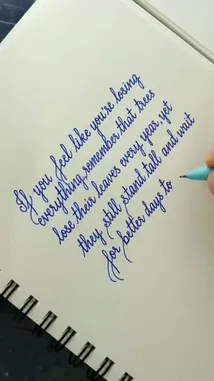 If you feel like you're losing
everything, remember that trees
lose their leaves every year, yet
they still stand tall and wait
for better days to